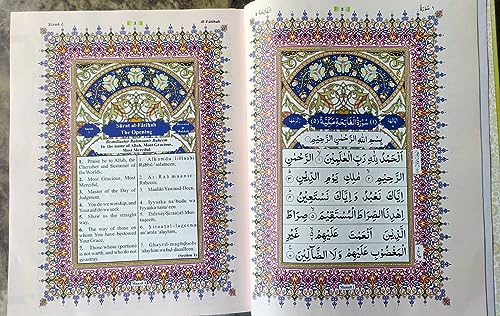 Sûrah 1.
3
Al-Fâtihah
Sûrat al-Fâtihah
The Opening
Bismillaahir Rahmaanir Raheem
In the name of Allah, Most Gracious,
Most Merciful.
1. Praise be to Allah, the
Cherisher and Sustainer of
the Worlds;
2. Most Gracious, Most
Merciful;
3. Master of the Day of
Judgment.
4. You do we worship, and
Your aid do we seek.
5. Show us the straight
way,
6. The way of those on
whom You have bestowed
Your Grace,
7. Those whose (portion)
is not wrath, and who do not
go astray.
1. Alhamdu lillaahi
Rabbil-'aalameen;
2. Ar-Rahmaanir-
Raheem;
3. Maaliki Yawmid-Deen.
4. Iyyaaka na'budu wa
Iyyaaka nasta'een.
5. Ihdinaṣ-Ṣiraaṭal-Mus-
taqeem;
6. Siraatal-lazeena
an'amta 'alayhim,
7. Ghayril-maghḍoobi
'alayhim wa laḍ-ḍaalleen.
(Section 1)
(١) سُوْرَةُ الْفَاتِحَةِ مَكِّيَّةٌ (٥)
بِسْمِ اللهِ الرَّحْمٰنِ الرَّحِيْمِ
اَلْحَمْدُ لِلّٰهِ رَبِّ الْعٰلَمِيْنَ الرَّحْمٰنِ
الرَّحِيْمِ مٰلِكِ يَوْمِ الدِّيْنِ
اِيَّاكَ نَعْبُدُ وَاِيَّاكَ نَسْتَعِيْنُ
اِهْدِنَا الصِّرَاطَ الْمُسْتَقِيْمَ صِرَاطَ
الَّذِيْنَ اَنْعَمْتَ عَلَيْهِمْ غَيْرِ
الْمَغْضُوْبِ عَلَيْهِمْ وَلَا الضَّآلِّيْنَ